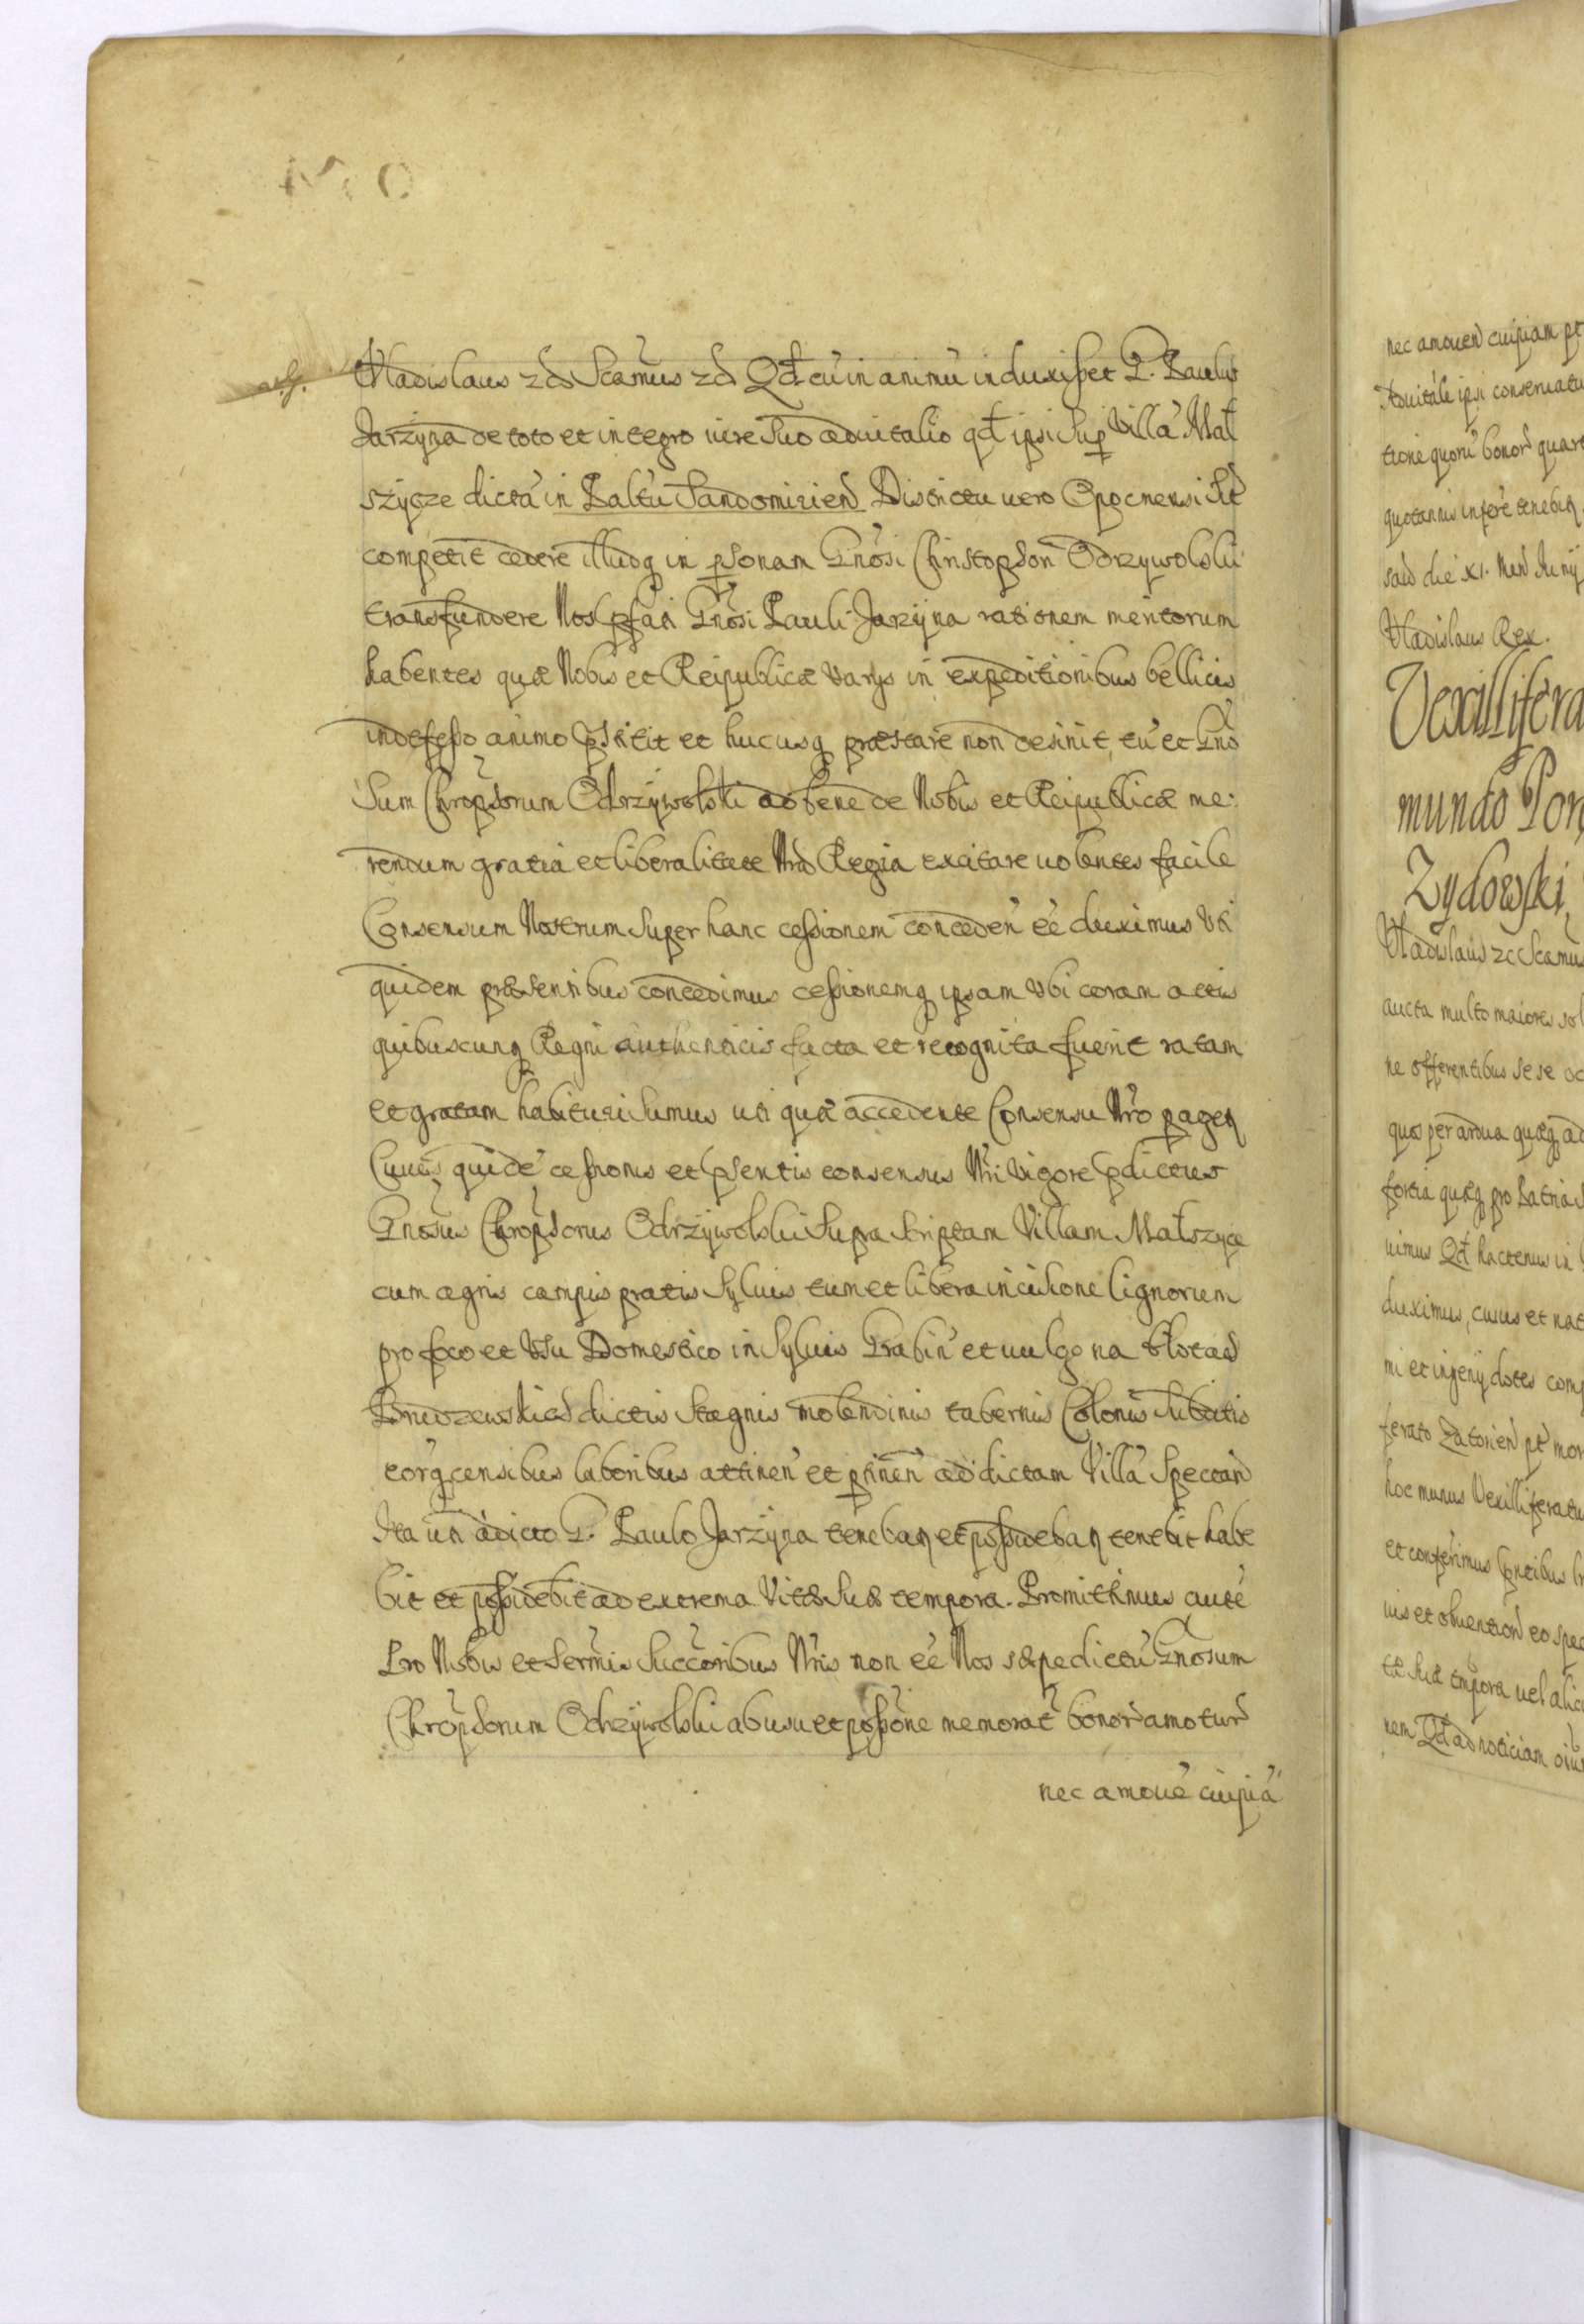 Vladislaus zc Scamus zc Qd cu in animu induxisset G. Paulus
Jarzyna de toto et integro iure suo aduitalio qd ipsi sup Villa Mal
szyce dicta in Paltu Sandomirien Districtu uero Opocnensi sit
competit cedere illudq in psonam Gnosi Christophori Odrzywolski
transfundere Nos pfati Gnosi Pauli Jarzyna rationem meritorum
habentes quæ Nobis et Reipublicæ varys in expeditionibus bellicis
indefesso animo pstitit et hucusq præstare non desinit, tu et Gno
sum Chrophorum Odrzywolski ad bene de Nobis et Reipublicæ me:
rendum gratia et liberalitate Nra Regia excitare uolentes facile
Consensum Nostrum super hanc cessionem conceden ee duximus Uti
quidem præsentibus concedimus cessionemq ipsam Ubi coram actis
quibuscunq Regni authenticis facta et recognita fuerit ratam
et gratam habituri sumus uti quæ accedente Consensu Nro pagetr
Cuius quide cessionis et psentis consensus Nri vigore pdictus
Gnosus Chrophorus Odrzywolski supra scriptam Villam Malszyce
cum agris campis pratis syluis tum et libera incisione lignorum
pro foco et Usu Domestico in syluis Grabin et uulgo na blotach
Brudzewskich dictis stagnis molendinis tabernis Colonis subditis
eorq censibus laboribus attinen et ptinen ad dictam Villa spectan
Ita un a dicto G. Paulo Jarzyna tenebatr et possidebatr tenebit habe
bit et possidebit ad extrema Vitæ suæ tempora. Promittimus aute
Pro Nobis et Sermis succoribus Nris non ee Nos sæpedictu Gnosum
Chrophorum Odrzywolski ab usu et possone memorat bonor amotur
nec amoue cuipia
nec amouen cuipiam pt
ipsi conseruatu
tione quoru bonor quart
quotannis inferre tenebitr
die XI. Mens Juny
Vladislaus Rex.
Vexillifera
mundo Pon
Zydowski
Vladislaus zc Scamus
aucta multo maiores sol
ne offerentibus sese oc
quos per ardua quæq ad
fortia quæq pro Patria
uimus Qd hactenus in
duximus, cuius et nat
mi et ingenij dotes comp
ferato Zatorien pt mor
hoc munus Vexilliferatu
et conferimus pntibus
iuis et obuention eo spec
tæ suæ tempora uel alic
nem Qd ad noticiam oiu